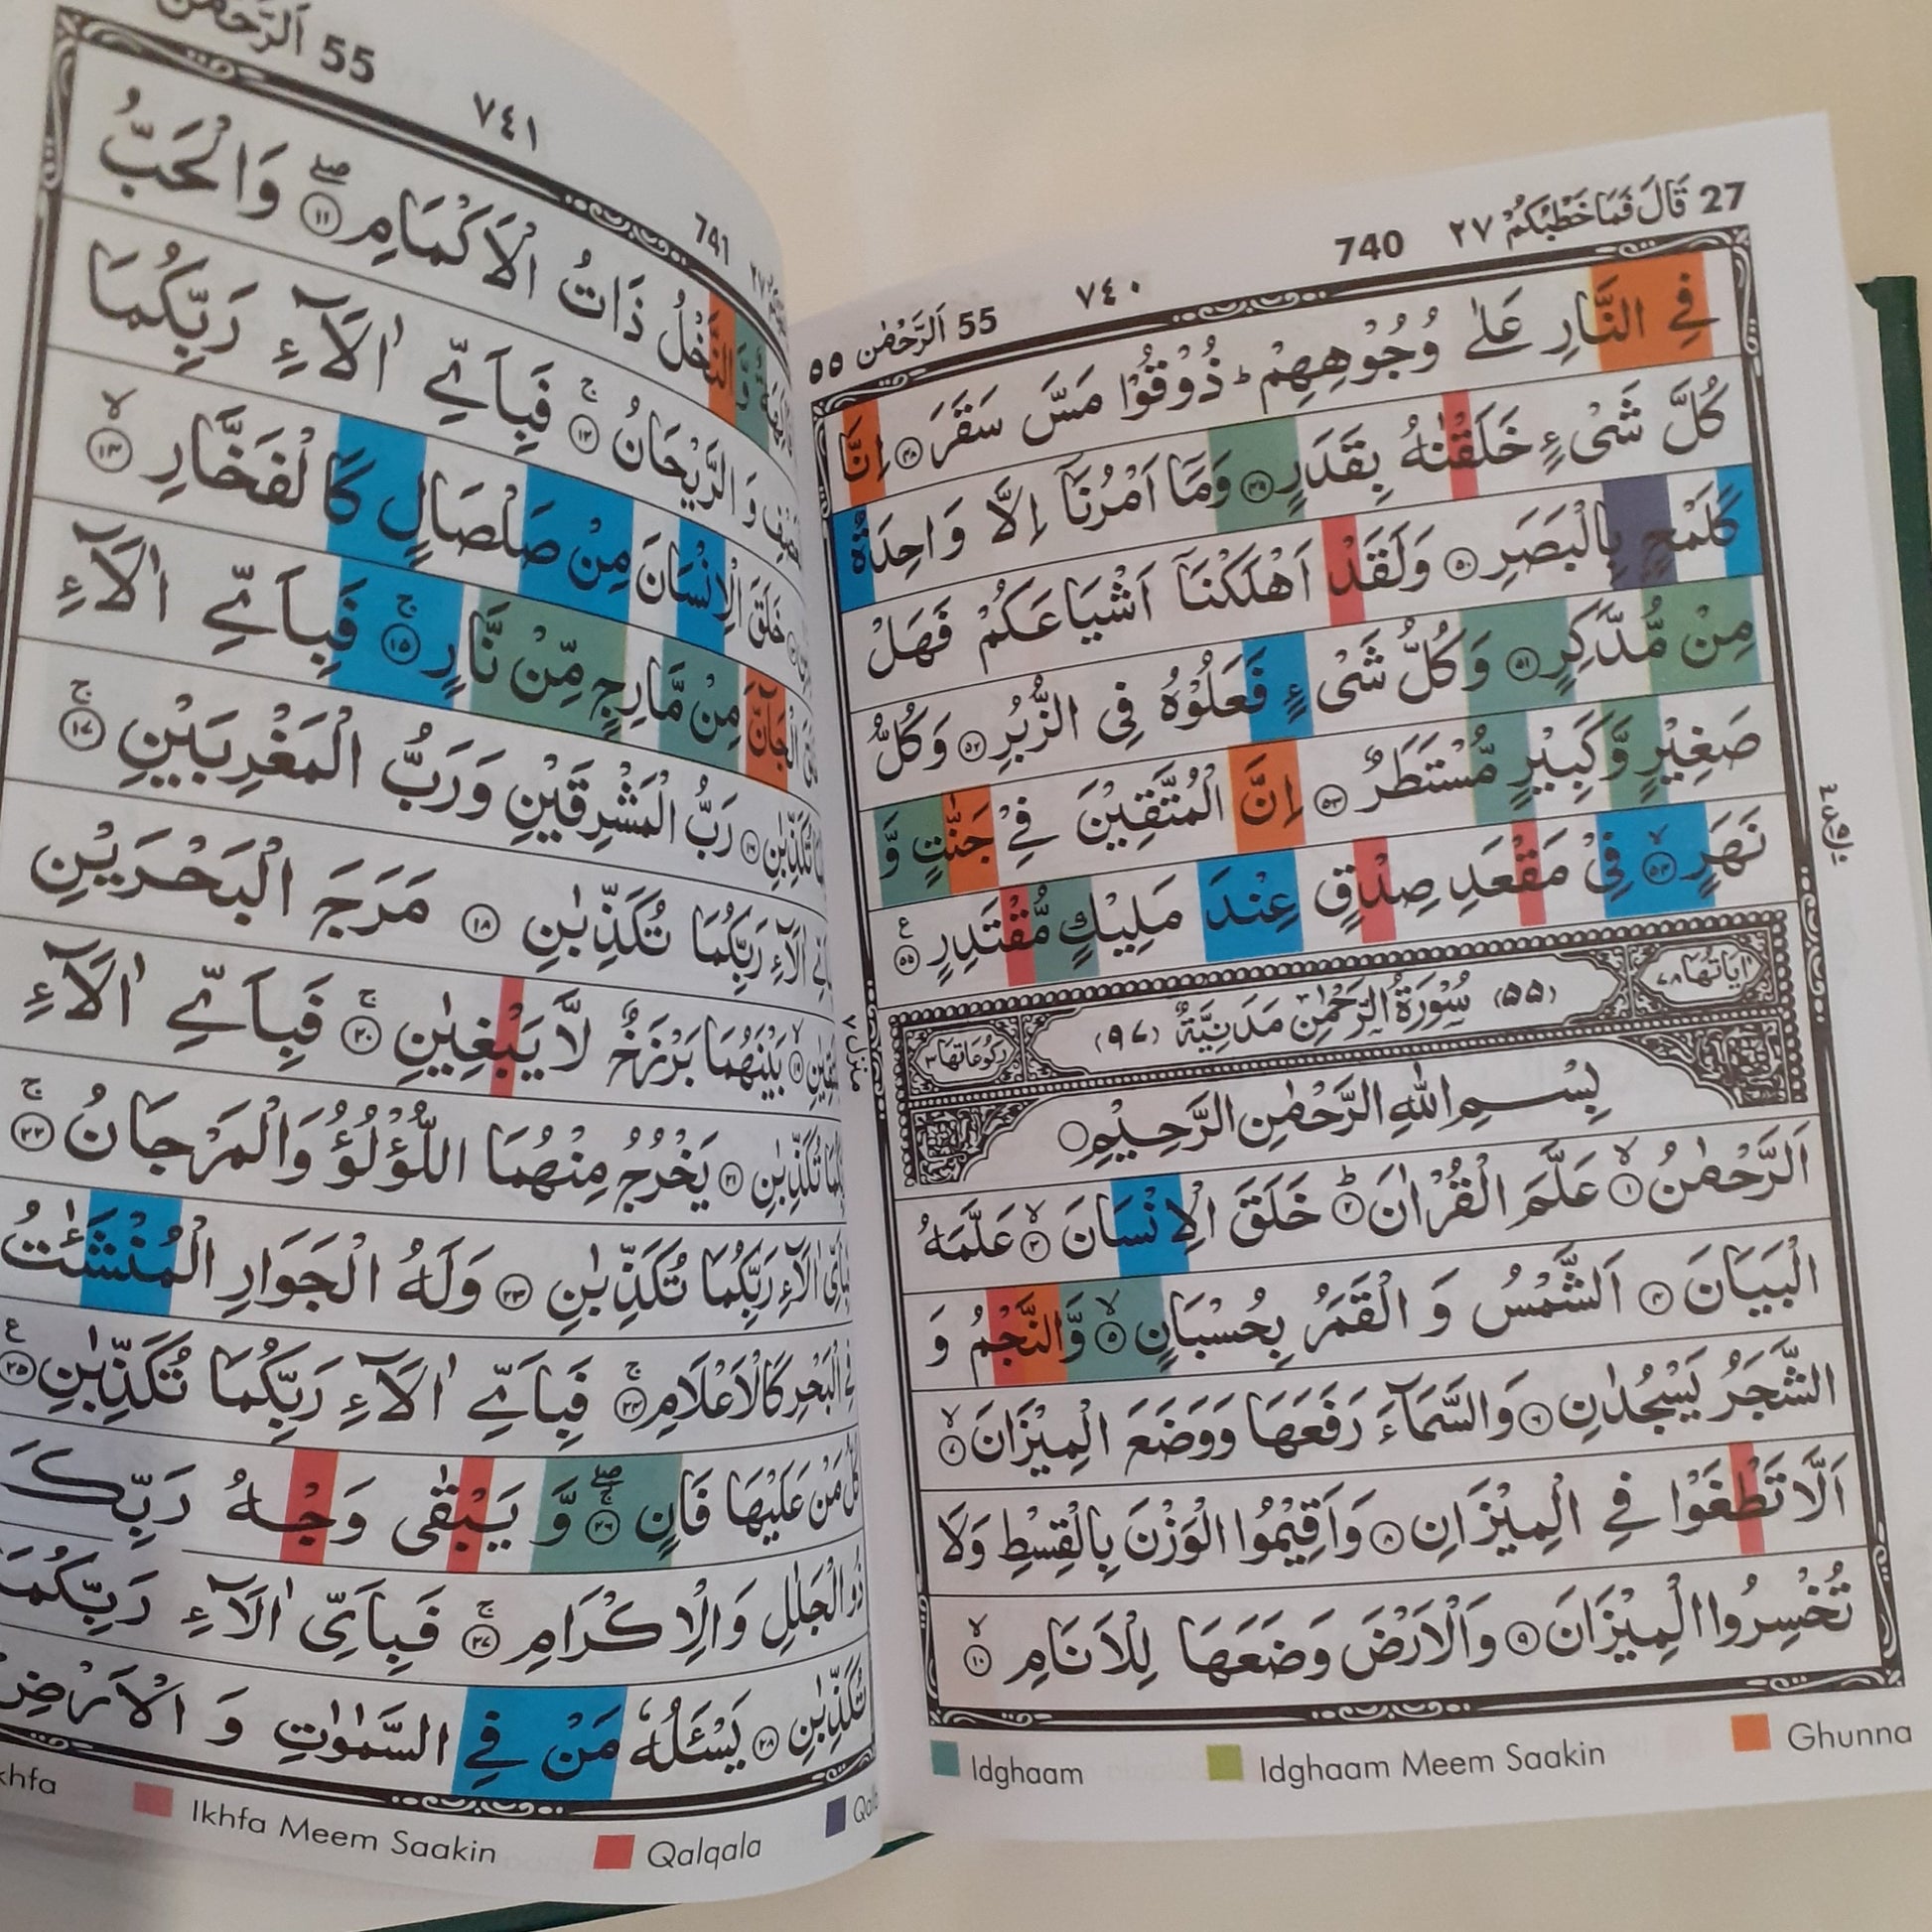 27 قَالَ فَمَا خَطْبُكُمْ ٢٧
740
٧٤٠
55 اَلرَّحْمٰن ٥٥
فِي النَّارِ عَلٰى وُجُوْهِهِمْ ؕ ذُوْقُوْا مَسَّ سَقَرَ ﴿٤٨﴾ اِنَّا
كُلَّ شَىْءٍ خَلَقْنٰهُ بِقَدَرٍ ﴿٤٩﴾ وَمَاۤ اَمْرُنَاۤ اِلَّا وَاحِدَةٌ
كَلَمْحٍۭ بِالْبَصَرِ ﴿٥٠﴾ وَلَقَدْ اَهْلَكْنَاۤ اَشْيَاعَكُمْ فَهَلْ
مِنْ مُّدَّكِرٍ ﴿٥١﴾ وَكُلُّ شَىْءٍ فَعَلُوْهُ فِى الزُّبُرِ ﴿٥٢﴾ وَكُلُّ
صَغِيْرٍ وَّكَبِيْرٍ مُّسْتَطَرٌ ﴿٥٣﴾ اِنَّ الْمُتَّقِيْنَ فِيْ جَنّٰتٍ وَّ
نَهَرٍ ۙ﴿٥٤﴾ فِيْ مَقْعَدِ صِدْقٍ عِنْدَ مَلِيْكٍ مُّقْتَدِرٍ ﴿٥٥﴾ ع
اٰيَاتُهَا ٧٨ (٥٥) سُوْرَةُ الرَّحْمٰنِ مَدَنِيَّةٌ (٩٧) رُكُوْعَاتُهَا ٣
بِسْمِ اللهِ الرَّحْمٰنِ الرَّحِيْمِ
اَلرَّحْمٰنُ ۙ﴿١﴾ عَلَّمَ الْقُرْاٰنَ ؕ﴿٢﴾ خَلَقَ الْاِنْسَانَ ۙ﴿٣﴾ عَلَّمَهُ
الْبَيَانَ ﴿٤﴾ اَلشَّمْسُ وَ الْقَمَرُ بِحُسْبَانٍ ۙ﴿٥﴾ وَّالنَّجْمُ وَ
الشَّجَرُ يَسْجُدٰنِ ﴿٦﴾ وَالسَّمَآءَ رَفَعَهَا وَوَضَعَ الْمِيْزَانَ ۙ﴿٧﴾
اَلَّا تَطْغَوْا فِي الْمِيْزَانِ ﴿٨﴾ وَاَقِيْمُوا الْوَزْنَ بِالْقِسْطِ وَلَا
تُخْسِرُوا الْمِيْزَانَ ﴿٩﴾ وَالْاَرْضَ وَضَعَهَا لِلْاَنَامِ ۙ﴿١٠﴾
Idghaam Idghaam Meem Saakin Ghunna
منزل ٧
741
٧٤١
55 اَلرَّحْمٰن
وَّالنَّخْلُ ذَاتُ الْاَكْمَامِ ۖ﴿١١﴾ وَالْحَبُّ
وَ الرَّيْحَانُ ۚ﴿١٢﴾ فَبِاَىِّ اٰلَآءِ رَبِّكُمَا
خَلَقَ الْاِنْسَانَ مِنْ صَلْصَالٍ كَالْفَخَّارِ ۙ﴿١٤﴾
الْجَآنَّ مِنْ مَّارِجٍ مِّنْ نَّارٍ ۚ﴿١٥﴾ فَبِاَىِّ اٰلَآءِ
تُكَذِّبٰنِ ﴿١٦﴾ رَبُّ الْمَشْرِقَيْنِ وَرَبُّ الْمَغْرِبَيْنِ ۚ﴿١٧﴾
اٰلَآءِ رَبِّكُمَا تُكَذِّبٰنِ ﴿١٨﴾ مَرَجَ الْبَحْرَيْنِ
﴿١٩﴾ بَيْنَهُمَا بَرْزَخٌ لَّا يَبْغِيٰنِ ۚ﴿٢٠﴾ فَبِاَىِّ اٰلَآءِ
تُكَذِّبٰنِ ﴿٢١﴾ يَخْرُجُ مِنْهُمَا اللُّؤْلُؤُ وَالْمَرْجَانُ ۚ﴿٢٢﴾
اٰلَآءِ رَبِّكُمَا تُكَذِّبٰنِ ﴿٢٣﴾ وَلَهُ الْجَوَارِ الْمُنْشَئٰتُ
فِى الْبَحْرِ كَالْاَعْلَامِ ۚ﴿٢٤﴾ فَبِاَىِّ اٰلَآءِ رَبِّكُمَا تُكَذِّبٰنِ ﴿٢٥﴾ ع
كُلُّ مَنْ عَلَيْهَا فَانٍ ۖ﴿٢٦﴾ وَّ يَبْقٰى وَجْهُ رَبِّكَ
ذُو الْجَلٰلِ وَالْاِكْرَامِ ۚ﴿٢٧﴾ فَبِاَىِّ اٰلَآءِ رَبِّكُمَا
تُكَذِّبٰنِ ﴿٢٨﴾ يَسْئَلُهٗ مَنْ فِي السَّمٰوٰتِ وَ الْاَرْضِ
Ikhfa Meem Saakin Qalqala